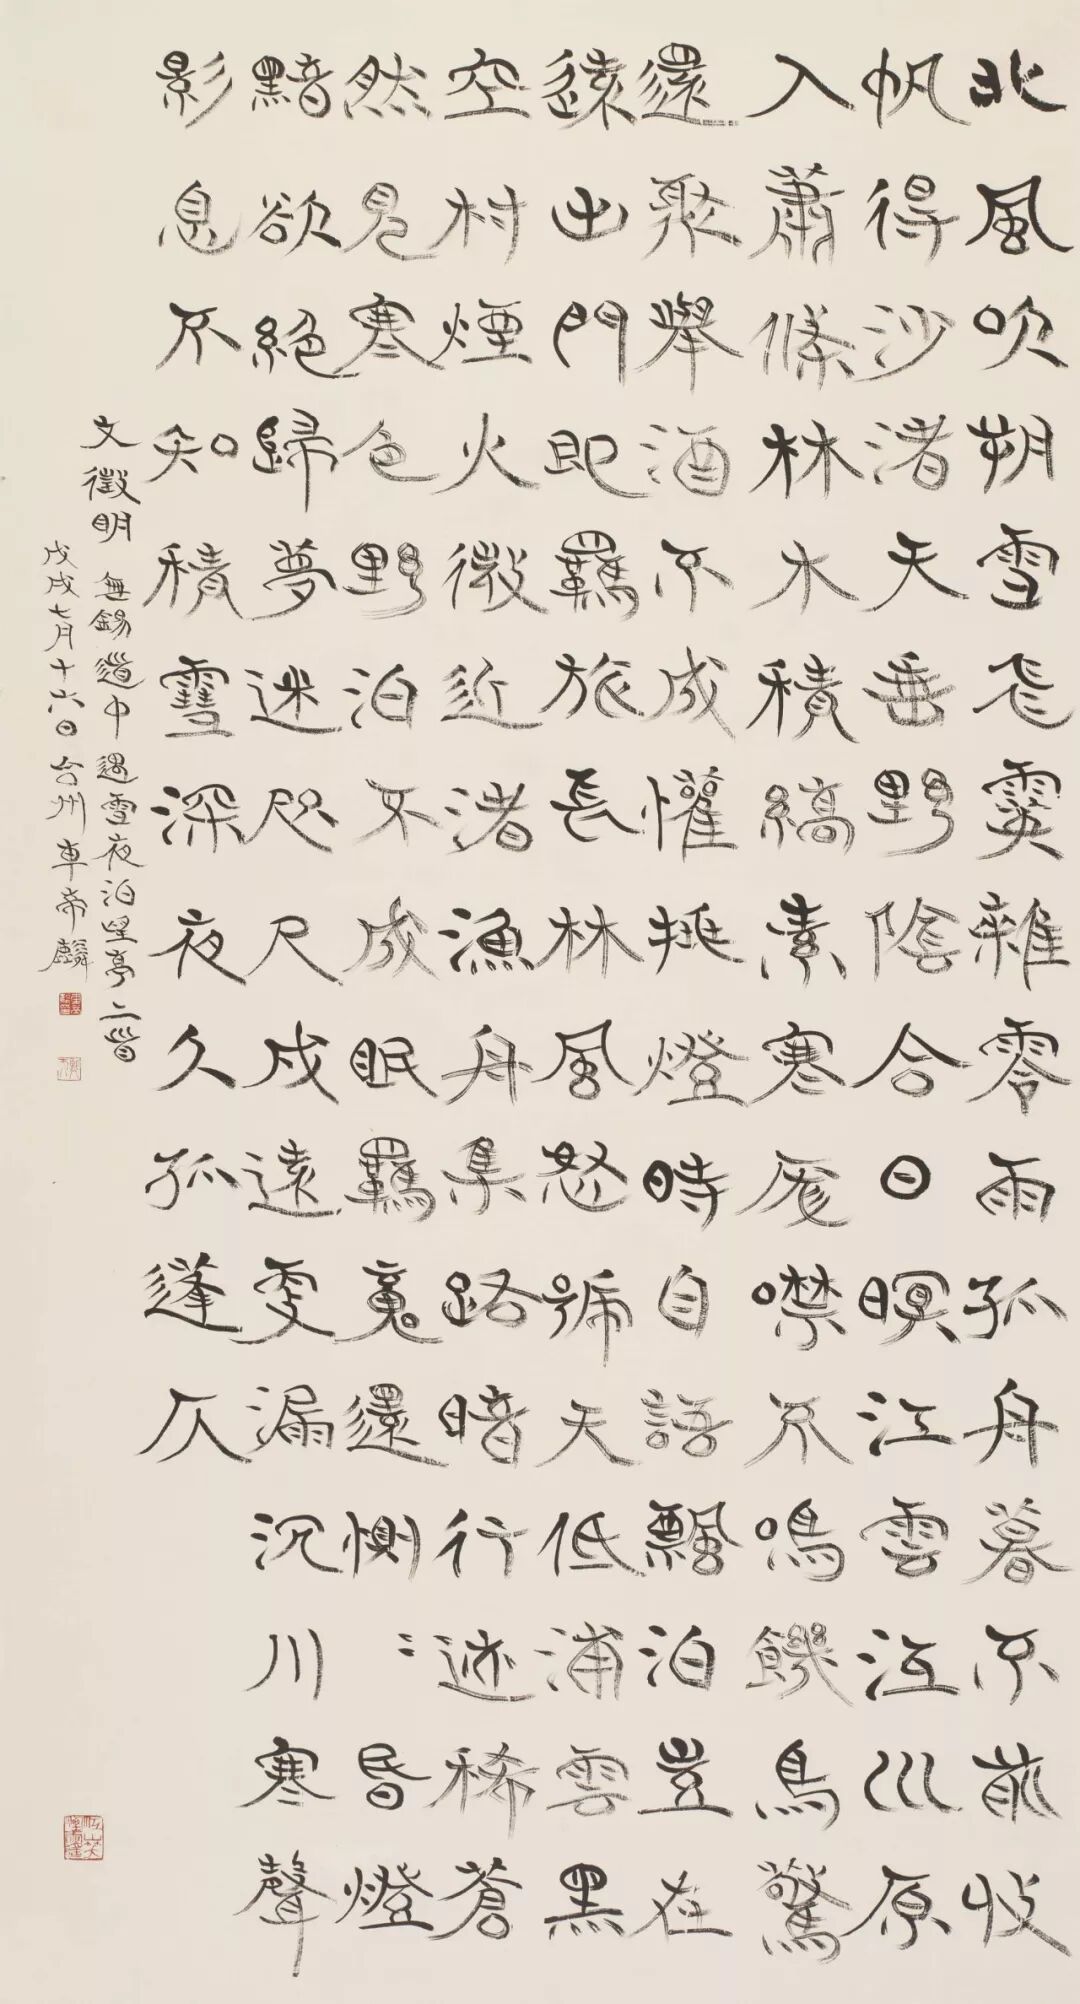 北風吹朔雪飛霙雜零雨孤舟暮不前收
帆得沙渚天垂野陰合日暝江雲江川原
入蕭條林木積縞素寒鴉噤不鳴饑鳥驚
還聚舉酒不成懽挑燈時自語飄泊豈在
遠出門即羈旅長林風怒號天低浦雲黑
空村煙火微近渚漁舟集路暗行迹稀蒼
然見寒色野泊不成眠羈魂還惻〻昏燈
黯欲絕歸夢迷咫尺戍遠更漏沉川寒聲
影息不知積雪深夜久孤篷仄
文徵明 無錫道中遇雪夜泊望亭二首
戊戌七月十六日台州車帝麟